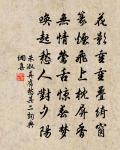 花影重重叠绮窗
篆烟飞上枕屏香
无情莺舌惊春梦
唤起愁人对夕阳
朱淑真 春愁其二 词典